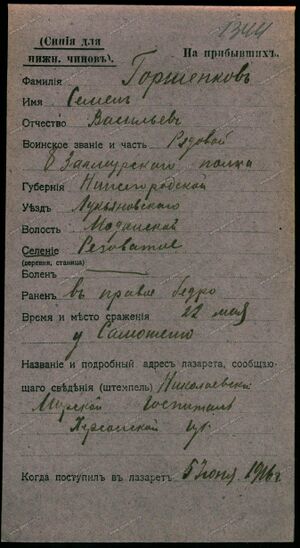 1344
(Синія для
нижн. чиновъ).
На прибывшихъ.
Фамилія Горшенковъ
Имя Семенъ
Отчество Васильевъ
Воинское званіе и часть Рядовой
Заамурскаго полка
Губернія Нижегородской
Уѣздъ Лукьяновскаго
Волость Маданской
Селеніе
(деревня, станица)
Боленъ
Раненъ въ правое бедро
Время и мѣсто сраженія 22 мая
у
Названіе и подробный адресъ лазарета, сообщаю-
щаго свѣдѣнія (штемпель) Николаевскій
Морской Госпиталь
Херсонской губ.
Когда поступилъ въ лазаретъ 5 Іюня 1916 г.